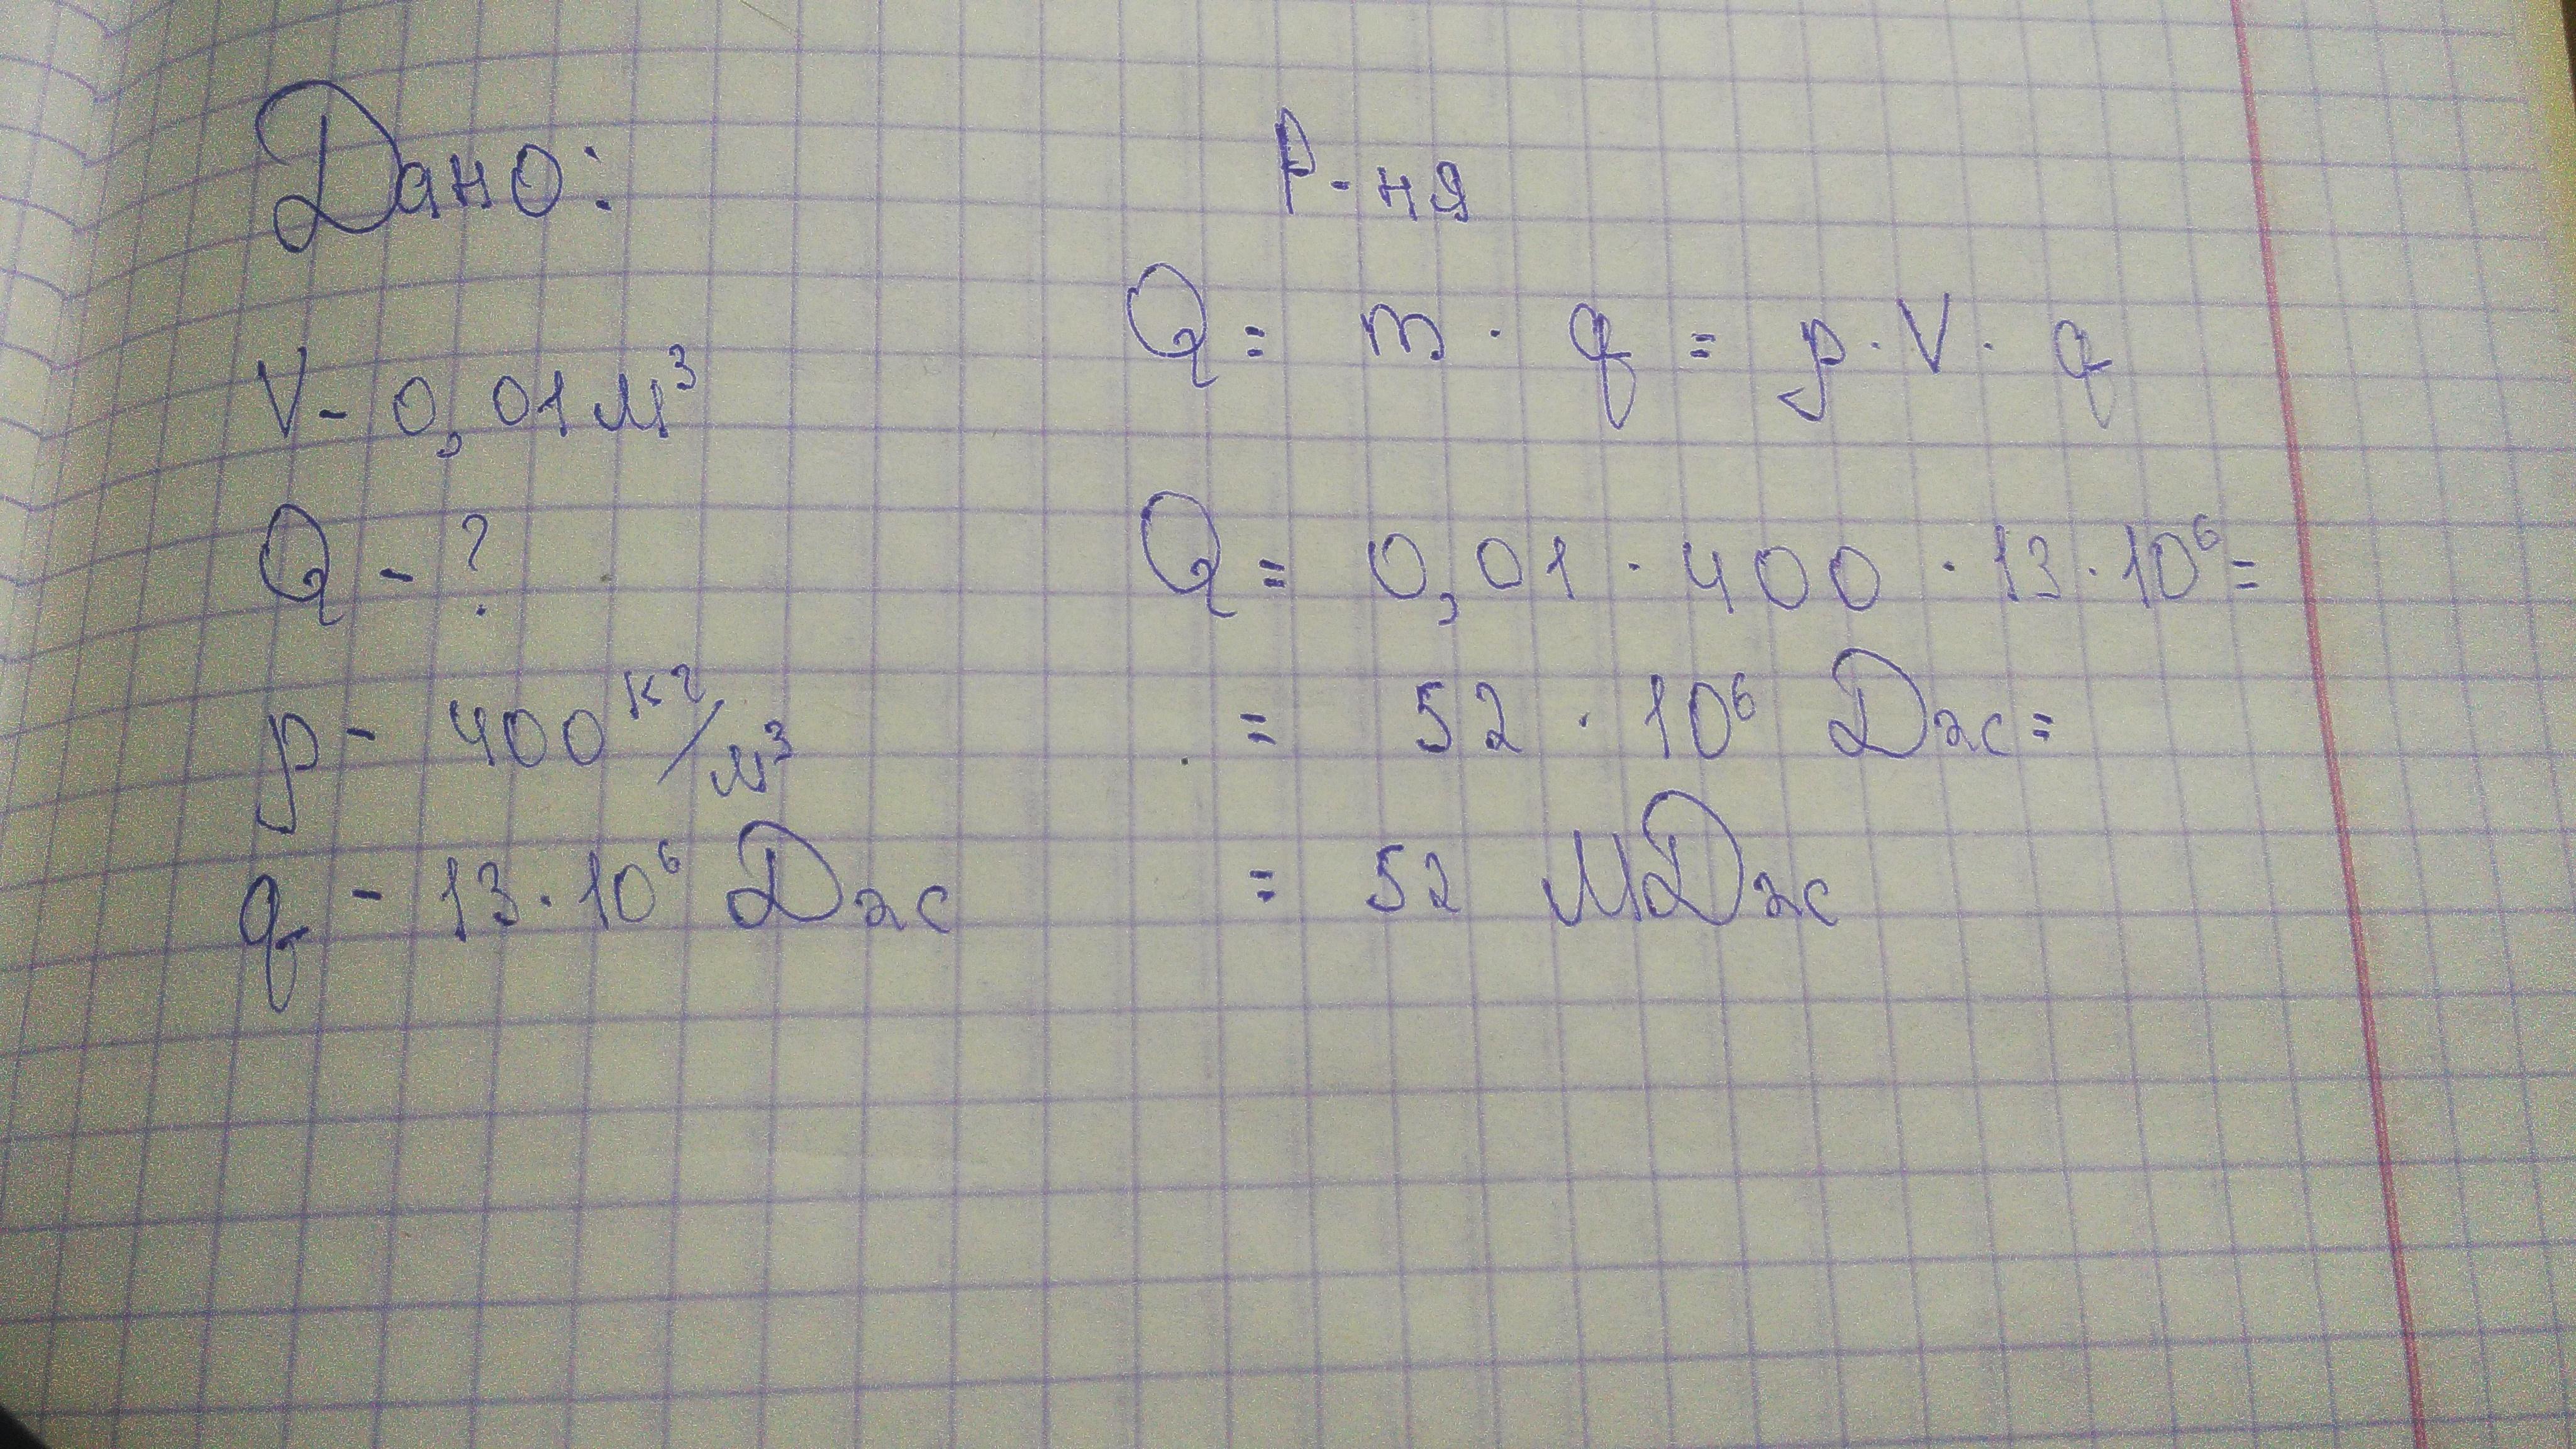 Дано:
V - 0,01 м³
Q - ?
ρ - 400 кг/м³
q - 13 · 10⁶ Дж
Р-ня
Q = m · q = ρ · V · q
Q = 0,01 · 400 · 13 · 10⁶ =
= 52 · 10⁶ Дж =
= 52 МДж